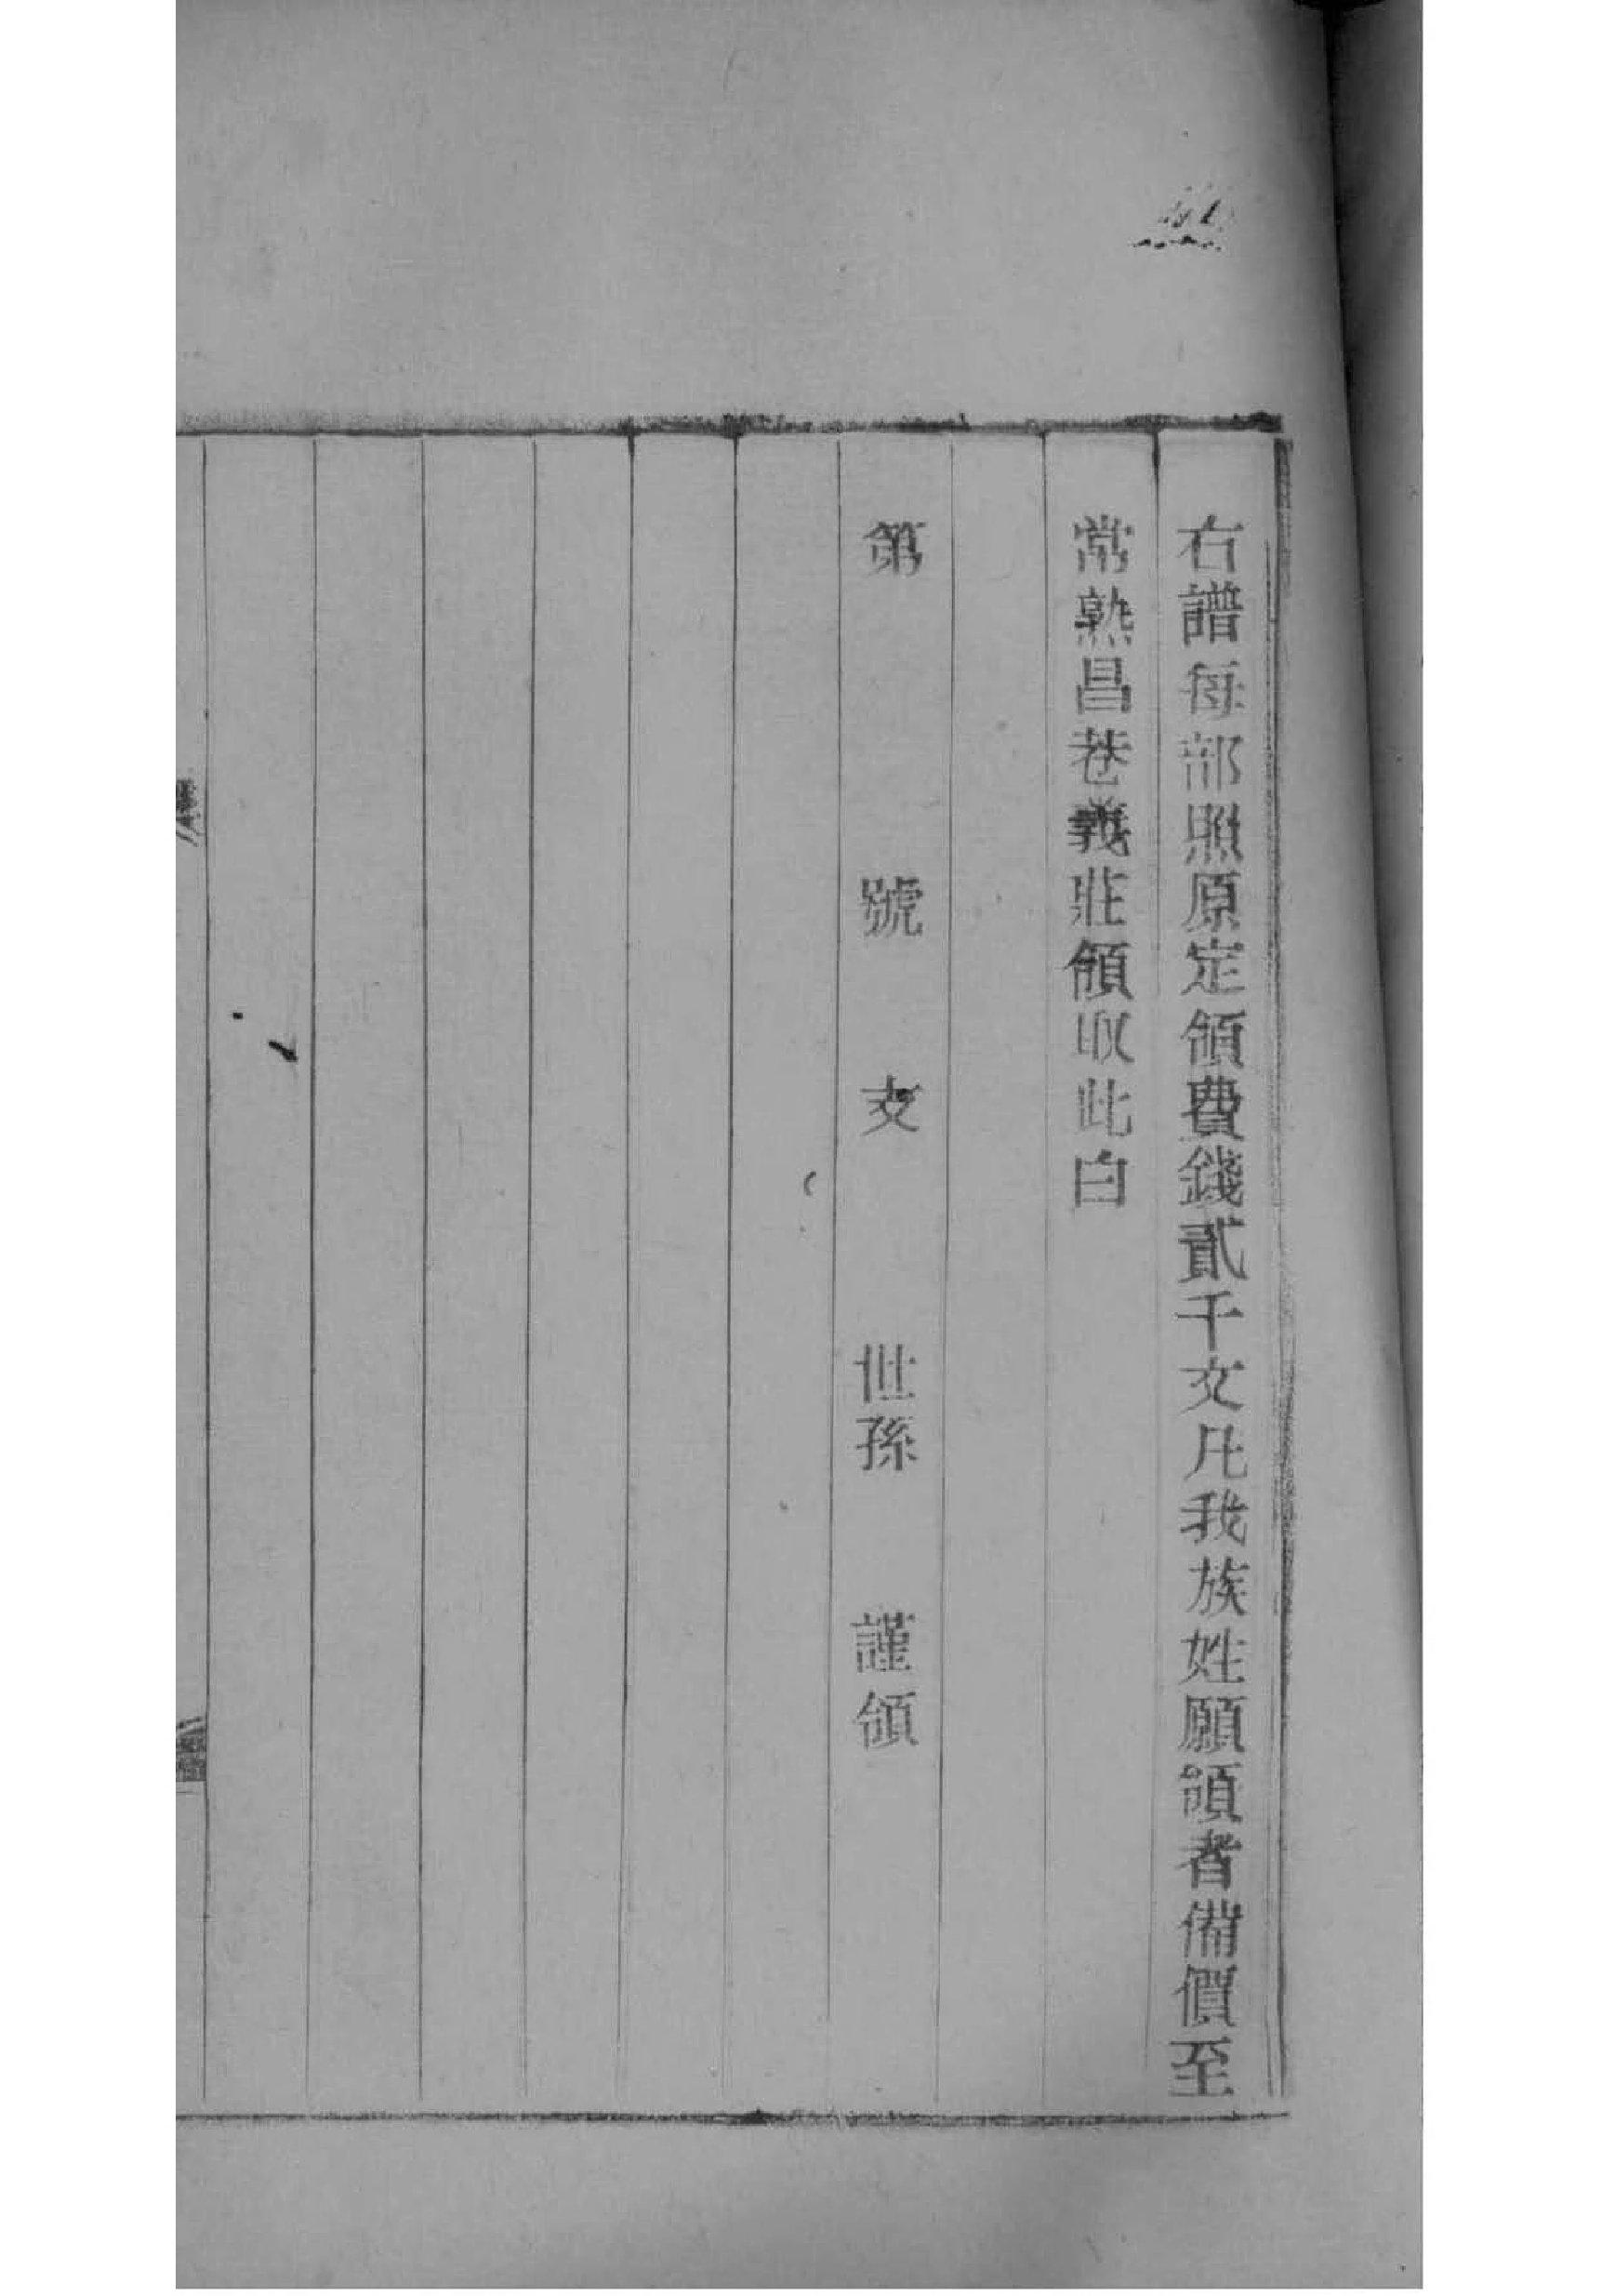 右譜每部照原定領費錢貳千文凡我族姓願領者備價至
常熟昌巷義莊領取此白
第　號　支　世孫　謹領